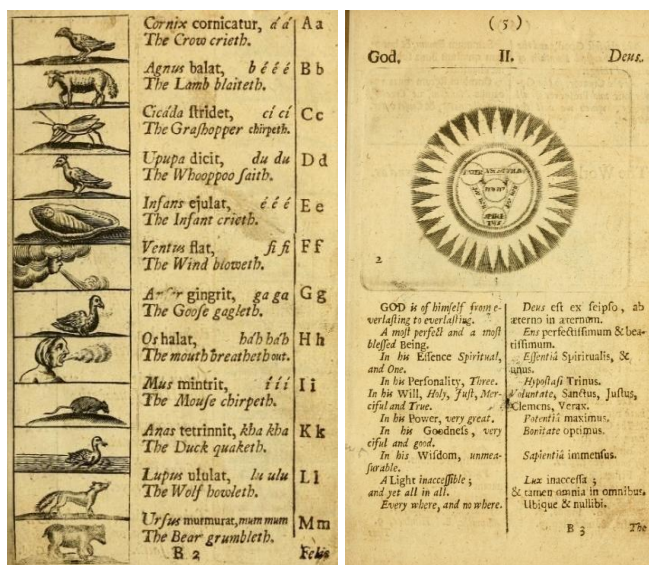 Cornix cornicatur, á á A a
The Crow crieth.
Agnus balat, b é é é B b
The Lamb blaiteth.
Cicáda ſtridet, cí cí C c
The Graſhopper chirpeth.
Upupa dicit, du du D d
The Whooppoo ſaith.
Infans ejulat, é é é E e
The Infant crieth.
Ventus flat, fi fi F f
The Wind bloweth.
gingrit, ga ga G g
The Gooſe gagleth.
Os halat, há'h há'h H h
The mouth breatheth out.
Mus mintrit, í í í I i
The Mouſe chirpeth.
Anas tetrinnit, kha kha K k
The Duck quaketh.
Lupus ululat, lu ulu L l
The Wolf howleth.
Urſus murmurat, mum mum M m
The Bear grumbleth.
B 2 Felis
( 5 )
God. II. Deus.
2
GOD is of himſelf from e-
verlaſting to everlaſting.
A moſt perfect and a moſt
bleſſed Being.
In his Eſſence Spiritual,
and One.
In his Perſonality, Three.
In his Will, Holy, Juſt, Mer-
ciful and True.
In his Power, very great.
In his Goodneſs, very
ciful and good.
In his Wiſdom, unmea-
ſurable.
A Light inacceſſible ;
and yet all in all.
Every where, and no where.
Deus eſt ex ſeipſo, ab
æterno in æternum.
Ens perfectiſſimum & bea-
tiſſimum.
Eſſentiâ Spiritualis, &
unus.
Hypoſtaſi Trinus.
Voluntate, Sanctus, Juſtus,
Clemens, Verax.
Potentiâ maximus.
Bonitate optimus.
Sapientiâ immenſus.
Lux inacceſſa ;
& tamen omnia in omnibus.
Ubique & nullibi.
B 3 The